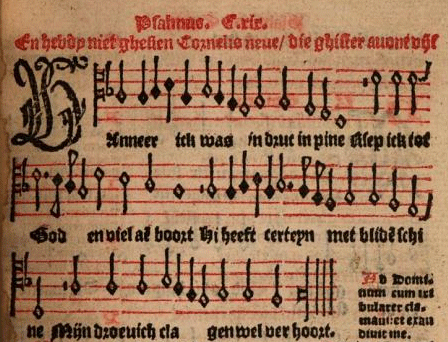 Psalmus. C.xix.
En hebdy niet ghesien Cornelis neue/ die ghister auont vyt
WAnneer ick was in druc in pine Riep ick tot
God en viel aē boort Hi heeft certeyn met blidē schi
ne Mijn droeuich cla gen wel ver hoort.
Ad Domi-
num cum tri
bularer cla-
maui: et exau
diuit me.